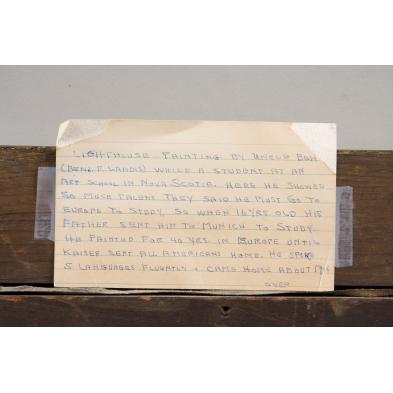 LIGHTHOUSE PAINTING BY UNCLE BEN.
(BENJ. F. LANDIS) WHILE A STUDENT AT AN
ART SCHOOL IN NOVA SCOTIA. HERE HE SHOWED
SO MUCH TALENT THEY SAID HE MUST GO TO
EUROPE TO STUDY, SO WHEN 16 YRS. OLD HIS
FATHER SENT HIM TO MUNICH TO STUDY.
HE PAINTED FOR 40 YRS. IN EUROPE UNTIL
KAISER SENT ALL AMERICANS HOME. HE SPOKE
5 LANGUAGES FLUENTLY + CAME HOME ABOUT
OVER